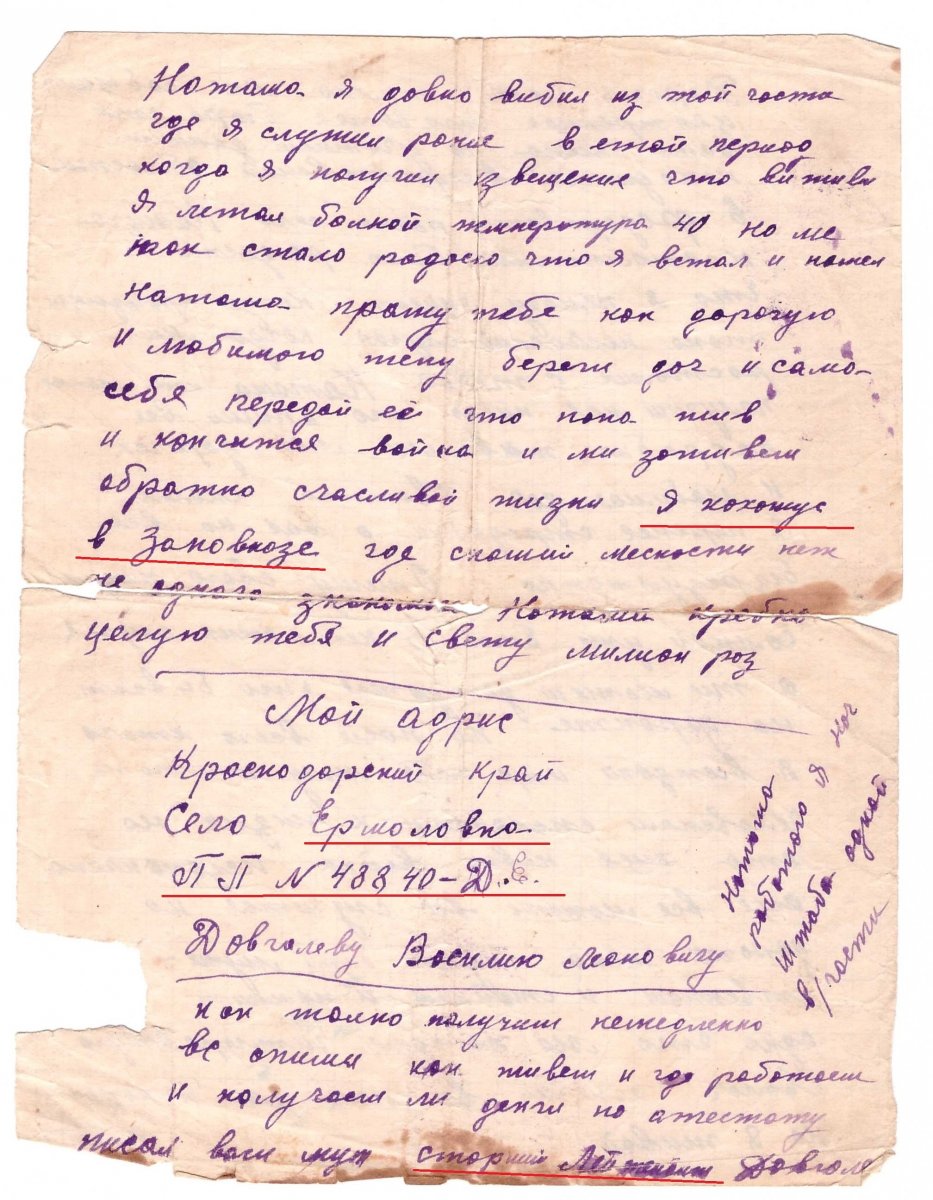 Наташа я довно вибил из той части
где я служил рание в етой период
когда я получил извещение что ви живи
я лежал болной температура 40 но мне
так стало радосно что я встал и пошел
Наташа прашу тебе как дорогую
и любимого жену береги доч и само-
себя передой её что папа жив
и кончится война и ми заживем
обратно счасливой жизни я нохожус
в Заковказе где с нашей месности нет
не одного знакомих Наташ кребко
целую тебя и свету милион роз
Мой адрис
Краснодарский край
Село Ермоловка
ПП N 48840-Д.Е.
Довголеву Василию Маковичу
Наташа
работаю я нач
Штаба одной
в/части
как только получиш немедленно
все опиши как живеш и где работаеш
и получаеш ли денги по атестату
писал ваш муж старший Лейтенант Довголе